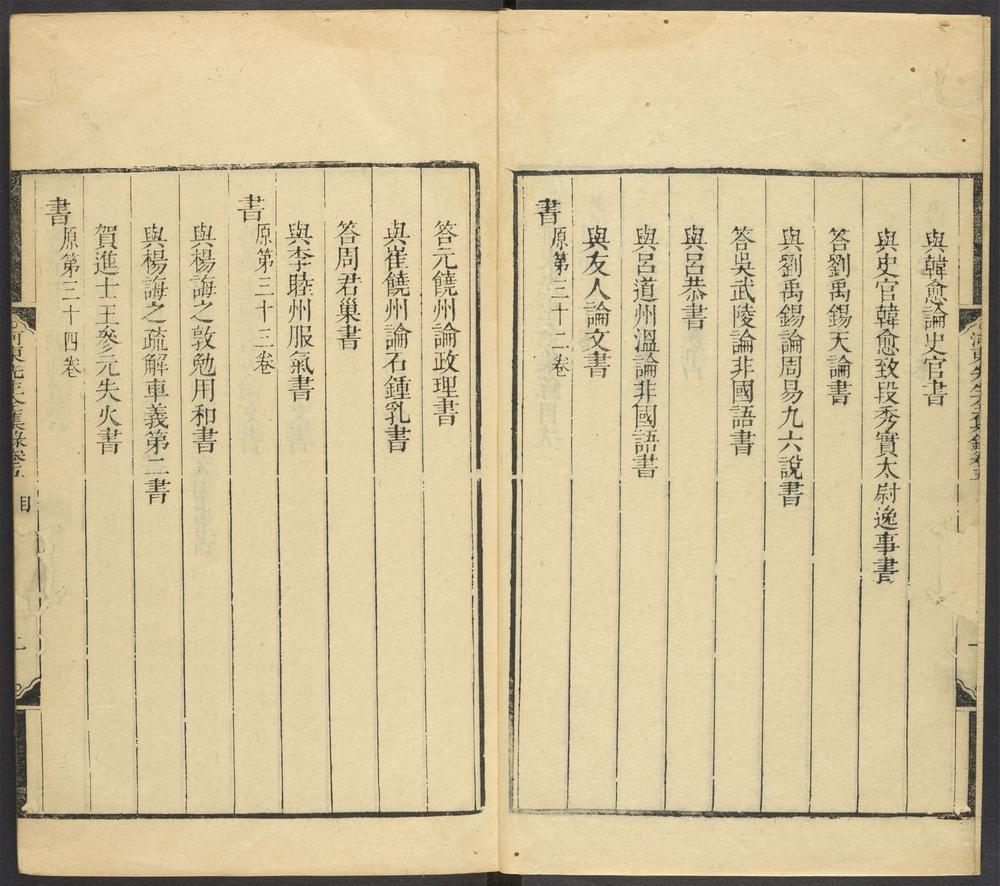 與韓愈論史官書
與史官韓愈致段秀實太尉逸事書
答劉禹錫天論書
與劉禹錫論周易九六說書
答吳武陵論非國語書
與呂恭書
與呂道州溫論非國語書
與友人論文書
書原第三十二卷
答元饒州論政理書
與崔饒州論石鍾乳書
答周君巢書
與李睦州服氣書
書原第三十三卷
與楊誨之敦勉用和書
與楊誨之疏解車義第二書
賀進士王參元失火書
書原第三十四卷
河東先生全集錄卷五 目 二